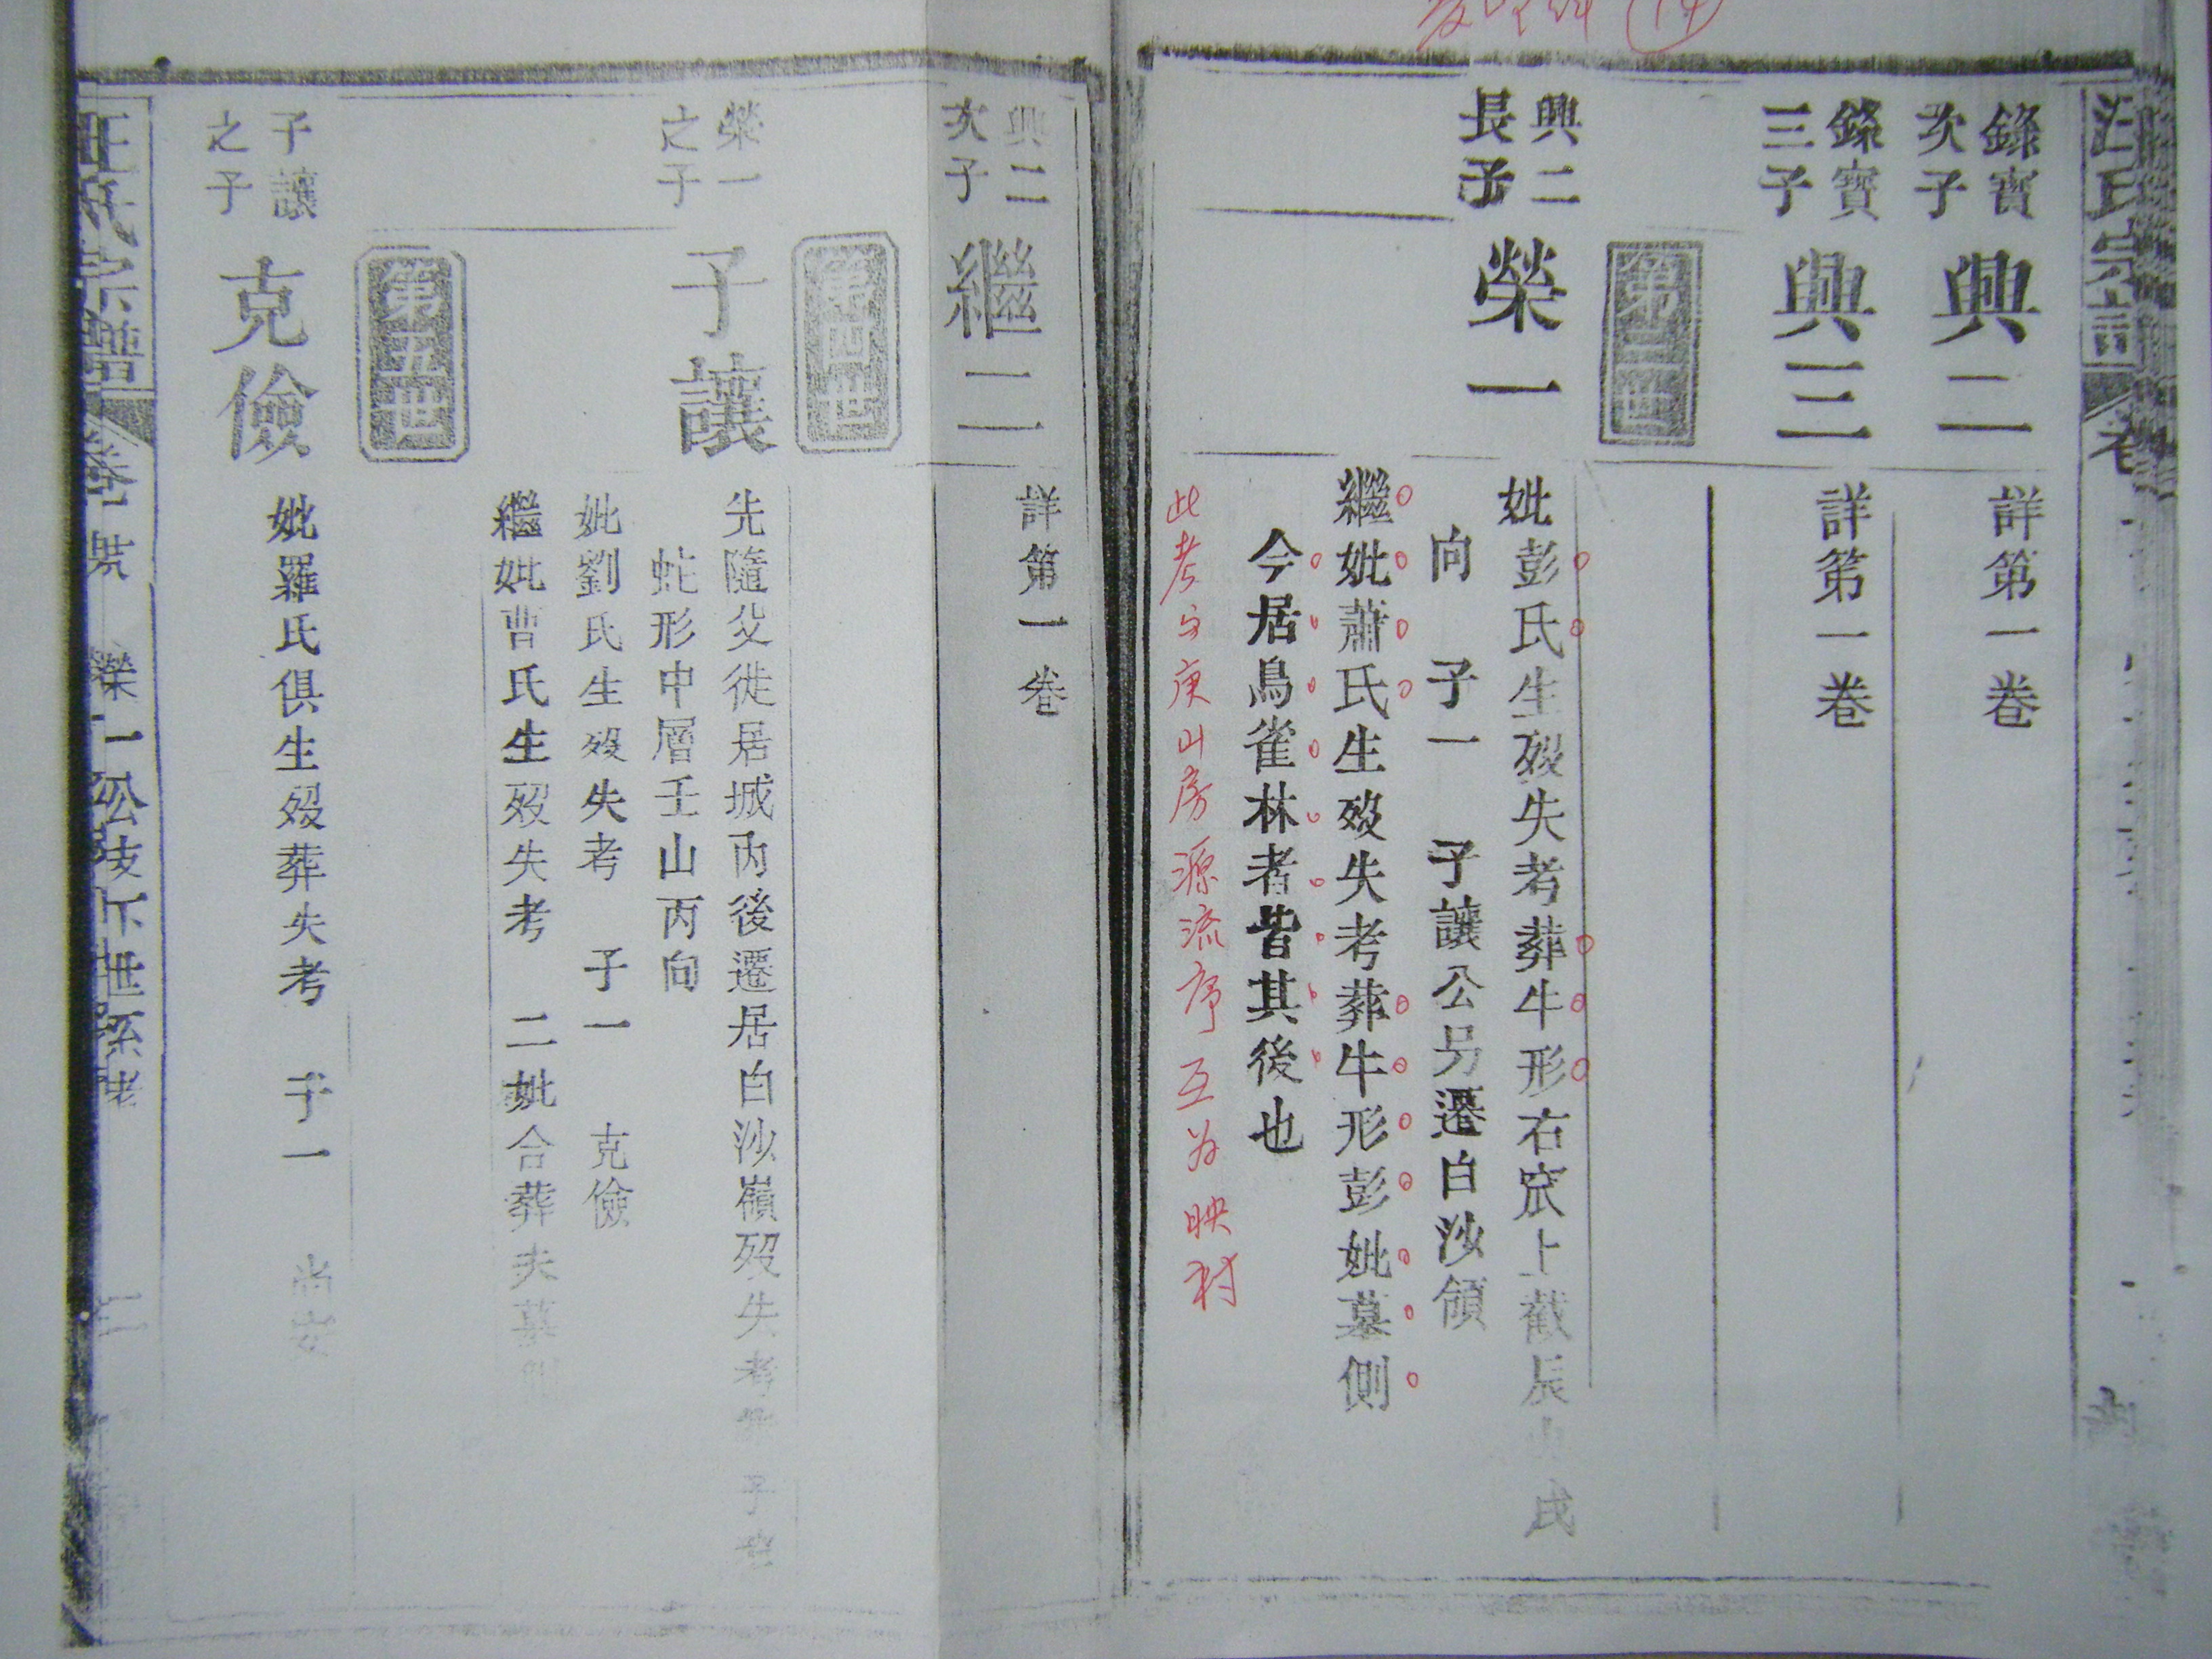 汪氏宗譜
卷
錄寶
次子
興二
詳第一卷
錄寶
三子
興三
詳第一卷
第三世
興二
長子
榮一
妣彭氏生歿失考葬牛形右窊上截辰山戌
向 子一 子讓公另遷白沙領
繼妣蕭氏生歿失考葬牛形彭妣墓側
今居鳥雀林者皆其後也
此考与庚山房源流序互为映衬
興二
次子
繼二
詳第一卷
第四世
榮一
之子
子讓
先隨父徙居城內後遷居白沙嶺歿失考
蛇形中層壬山丙向
妣劉氏生歿失考 子一 克儉
繼妣曹氏生歿失考 二妣合葬夫墓側
第五世
子讓
之子
克儉
妣羅氏俱生歿葬失考 子一 尚安
汪氏宗譜
卷 榮一公支下世系